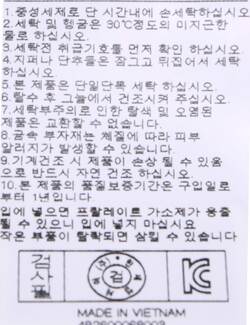 1.중성세제로 단 시간내에 손세탁하십시오
2.세탁 및 헹굼은 30℃정도의 미지근한
물로 하십시오.
3.세탁전 취급기호를 먼저 확인 하십시오.
4.지퍼나 단추들은 잠그고 뒤집어서 세탁
하십시오.
5.본 제품은 단일단독 세탁 하십시오.
6.탈수 후 그늘에서 건조시켜 주십시오.
7.세탁부주의로 인한 탈색 및 오염된
제품은 교환할 수 없습니다.
8.금속 부자재는 체질에 따라 피부
알러지가 발생할 수 있습니다.
9.기계건조 시 제품이 손상 될 수 있음
으로 반드시 자연 건조 하십시오.
10.본 제품의 품질보증기간은 구입일로
부터 1년입니다.
입에 넣으면 프탈레이트 가소제가 용출
될 수 있으니 입에 넣지 마십시요
작은 부품이 탈락되면 삼킬 수 있습니다
검사필
검
MADE IN VIETNAM